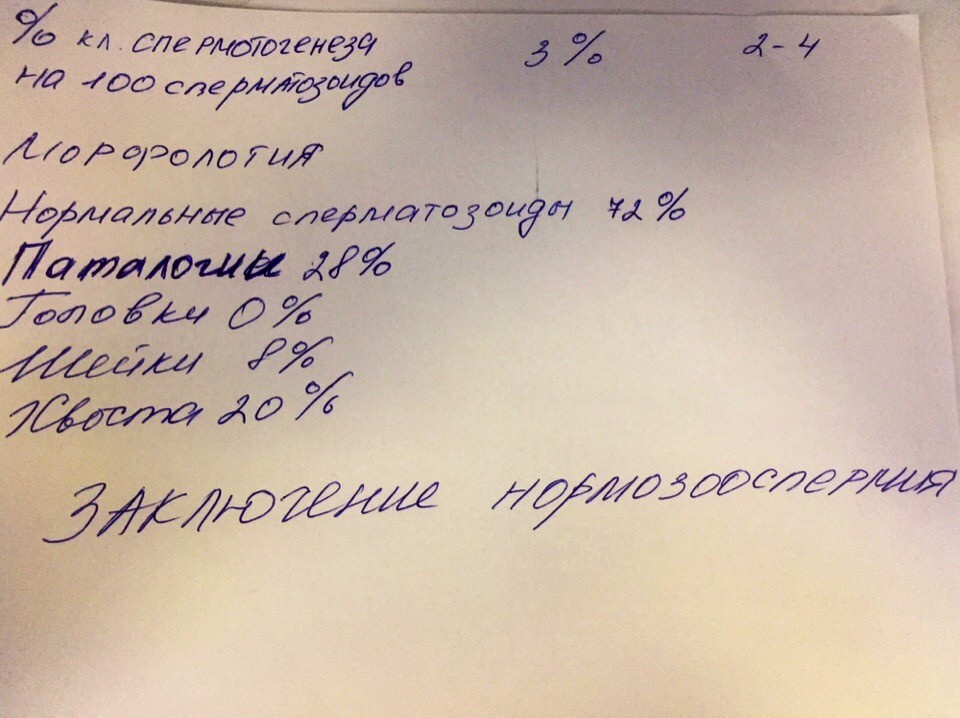 % кл. спермотогенеза 3% 2-4
на 100 сперматозоидов
Морфология
Нормальные сперматозоиды 72%
Паталогии 28%
Головки 0%
Шейки 8%
Хвоста 20%
Заключение нормозооспермия